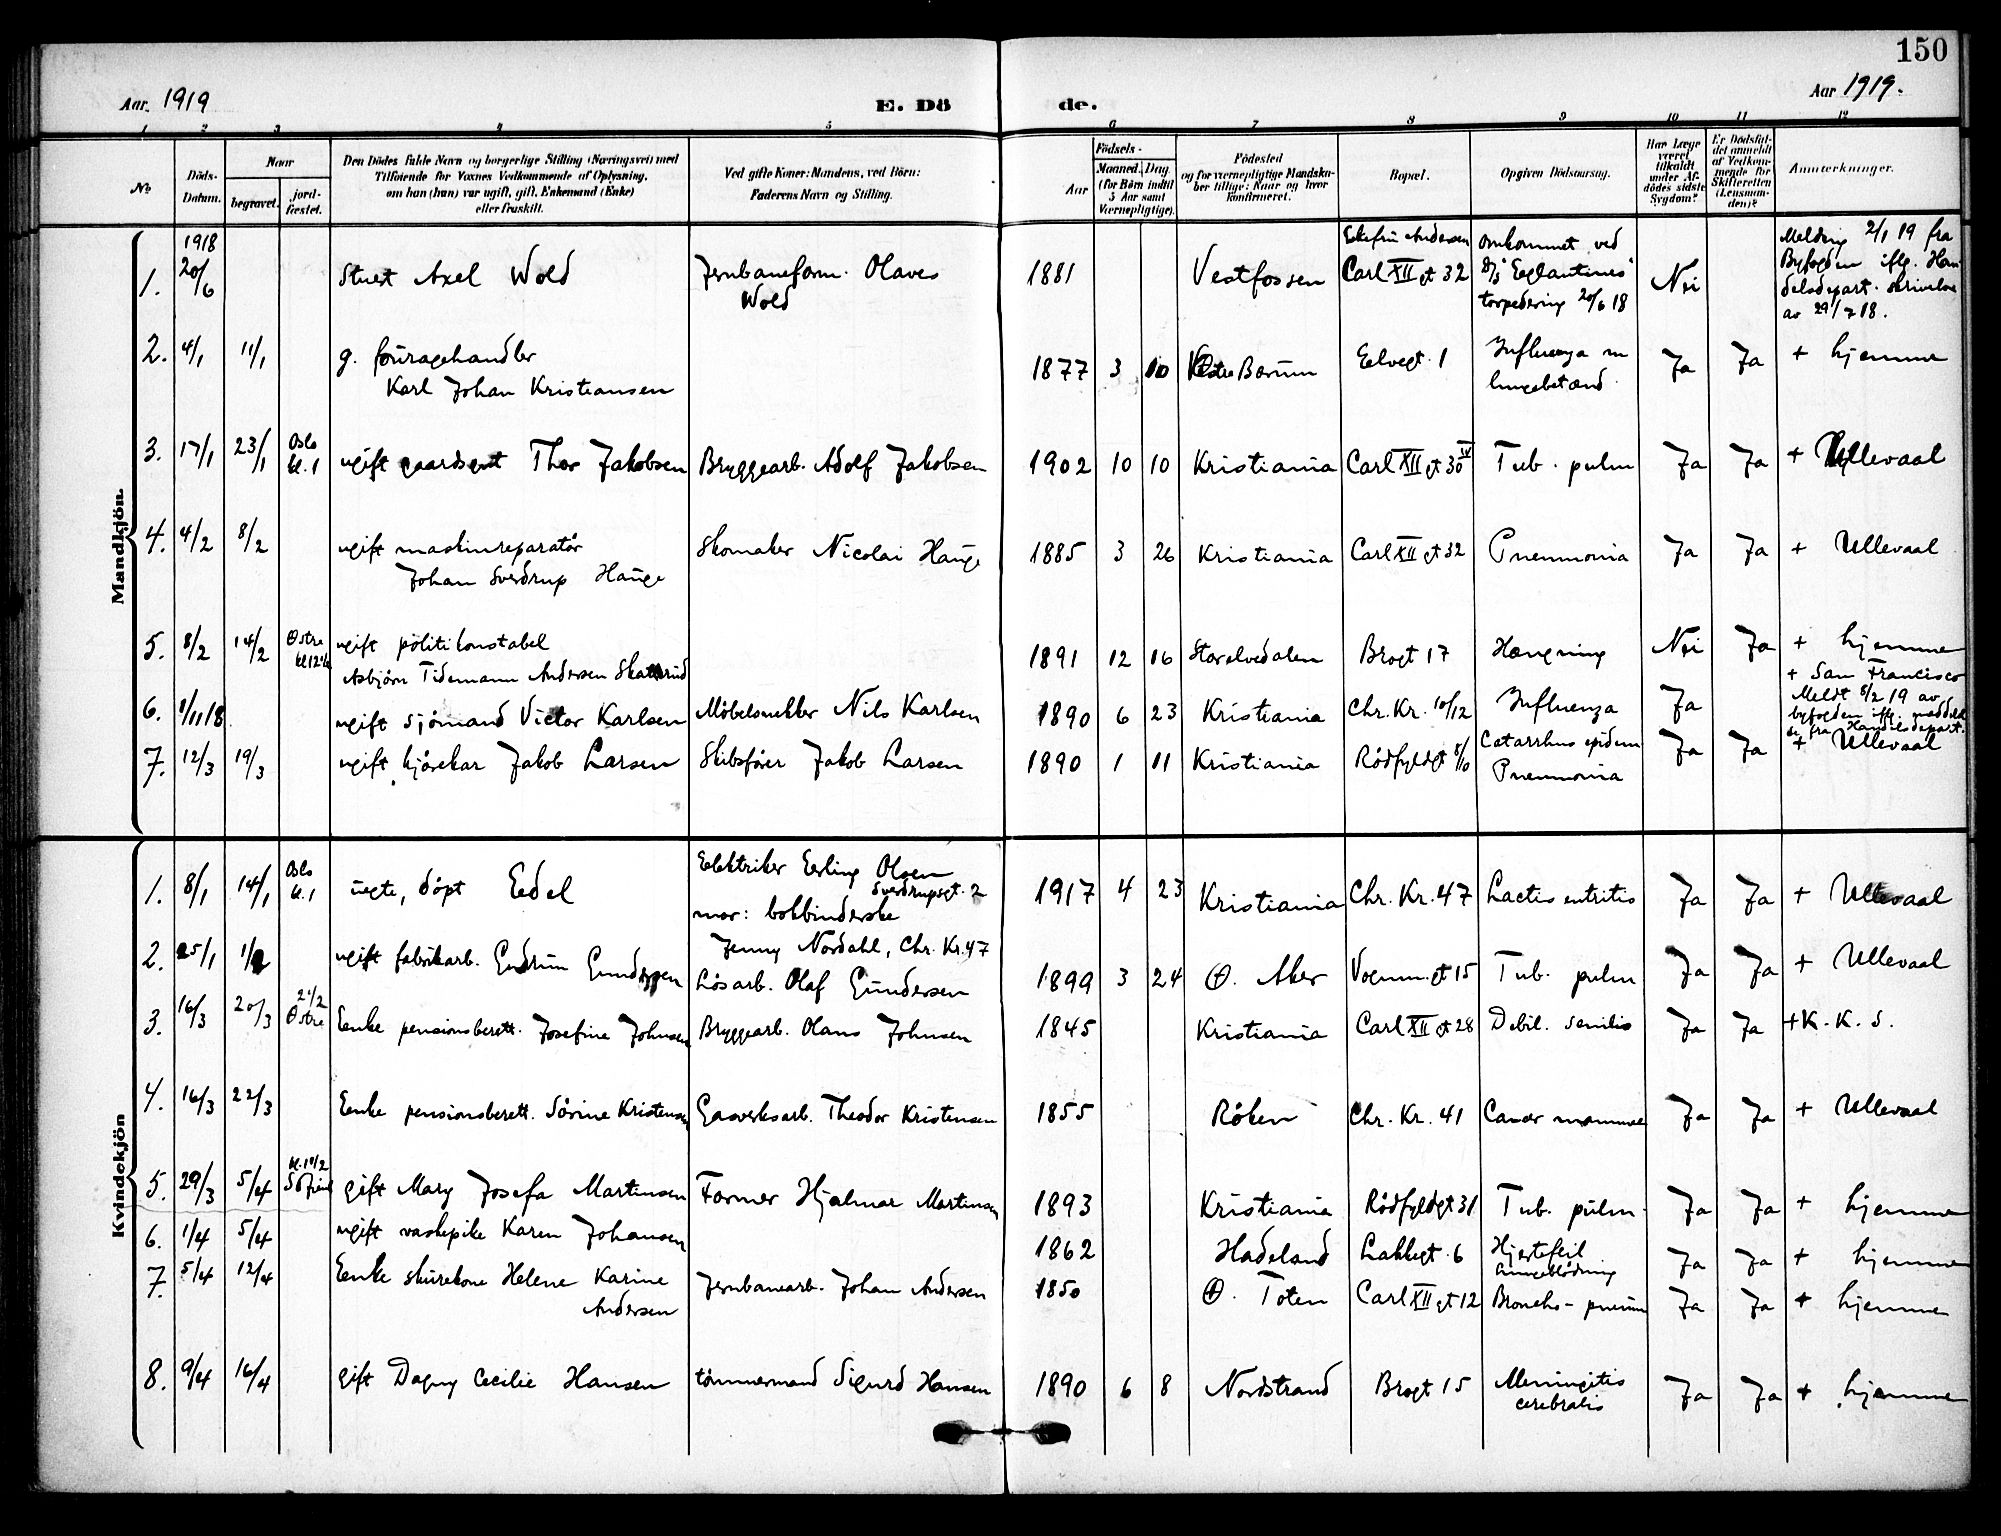 150
Aar 1919
E. Dö de.
Aar 1919.
1 2 3 4 5 6 7 8 9 10 11 12
No
Döds-
Datum.
Naar
begravet.
jord-
fæstet.
Den Dödes fulde Navn og borgerlige Stilling (Næringsvei) med
Tilföiende for Voxnes Vedkommende af Oplysning,
om han (hun) var ugift, gift, Enkemand (Enke)
eller fraskilt.
Ved gifte Koner: Mandens, ved Börn:
Faderens Navn og Stilling.
Födsels-
Aar
Maaned. Dag.
(for Börn indtil
5 Aar samt
Værnepligtige).
Födested
og for værnepligtige Mandska-
ber tillige: Naar og hvor
konfirmeret.
Bopæl.
Opgiven Dödsaarsag.
Har Læge
været
tilkaldt
under Af-
dödes sidste
Sygdom?
Er Dödsfal-
det anmeldt
af Vedkom-
mende for
Skifteretten
(Lensman-
den)?
Anmærkninger.
Mandkjön.
1. 1918 20/6 Stuert Axel Wold Jernbaneform. Olaves Wold 1881 Vestfossen Carl XII gt 32 Omkommet ved D/S "Eglantines" torpedering 20/6 18 Nei Melding 2/1 19 fra Byfogden iflg. Han delsdepart. skrivelse av 29/7 18.
2. 4/1 11/1 g. fouragehandler Karl Johan Kristiansen 1877 3 10 Bærum Eelvegt. 1 Influenza m lungebetænd. Ja Ja + hjemme
3. 17/1 23/1 Oslo kl. 1 ugift gaardsgut Thor Jakobsen Bryggearb. Adolf Jakobsen 1902 10 10 Kristiania Carl XII gt 30 IV Tub. pulm Ja Ja + Ullevaal
4. 4/2 8/2 ugift maskinreparatör Johan Sverdrup Hauge Skomaker Nicolai Hauge 1885 3 26 Kristiania Carl XII gt 32 Pneumonia Ja Ja + Ullevaal
5. 8/2 14/2 Østre ugift politikonstabel Asbjørn Tidemann Andersen 1891 12 16 Storelvedalen Brogt 17 Hængning Nei Ja + hjemme
6. 1/11 18 ugift sjömand Victor Karlsen Möbelsnekker Nils Karlsen 1890 6 23 Kristiania Chr. Kr. 10/12 Influenza Ja + San Francisco Meldt 8/2 19 av byfogden iflg. fra Handelsdepart.
7. 12/3 19/3 ugift kjörekar Jakob Larsen Skibsförer Jakob Larsen 1890 1 11 Kristiania Rödfyldgt 8/10 Catarrhus epidem Pneumonia Ja Ja + Ullevaal
Kvindekjön
1. 8/1 14/1 Oslo kl. 1 uegte, döpt Eedel Elektriker Erling Olsen Sverdrupsgt. 2 mor: bokbinderske Jenny Nordahl, Chr. Kr. 47 1917 4 23 Kristiania Chr. Kr. 47 Ja Ja + Ullevaal
2. 25/1 1/2 ugift fabrikarb. Gudrun Gundersen Lösarb. Olaf Gundersen 1899 3 24 Ø. Aker Vognm. gt 15 Tub. pulm Ja Ja + Ullevaal
3. 16/3 20/3 2 1/2 Østre Eenke pensionsberett. Josefine Johnsen Bryggearb. Olaus Johnsen 1845 Kristiania Carl XII gt 28 Debil. senilis Ja Ja + K. K. S.
4. 16/3 22/3 Eenke pensionsberett. Sörine Kristensen Gasverksarb. Theodor Kristensen 1855 Röken Chr. Kr. 41 Cancer mammae Ja Ja + Ullevaal
5. 29/3 5/4 gift Mary Josefa Martinsen Former Hjalmar Martinsen 1893 Kristiania Rödfyldgt 31 Tub. pulm. Ja Ja + hjemme
6. 1/4 5/4 ugift vaskepike Karen Johansen 1862 Hadeland Lakkegt. 6 Hjertefeil Lungeblödning Ja Ja + hjemme
7. 5/4 12/4 Eenke skurekone Helene Karine Andersen Jernbanearb. Johan Andersen 1850 Ø. Toten Carl XII gt 12 Broncho-pneum Ja Ja + hjemme
8. 9/4 16/4 gift Dagny Cecilie Hansen tömmermand Sigurd Hansen 1890 6 8 Nordstrand Brogt 15 Meningitis cerebralis Ja Ja + hjemme